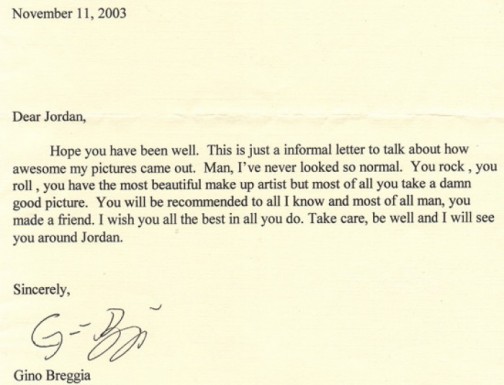 November 11, 2003
Dear Jordan,
Hope you have been well. This is just a informal letter to talk about how
awesome my pictures came out. Man, I've never looked so normal. You rock , you
roll , you have the most beautiful make up artist but most of all you take a damn
good picture. You will be recommended to all I know and most of all man, you
made a friend. I wish you all the best in all you do. Take care, be well and I will see
you around Jordan.
Sincerely,
Gino Breggia